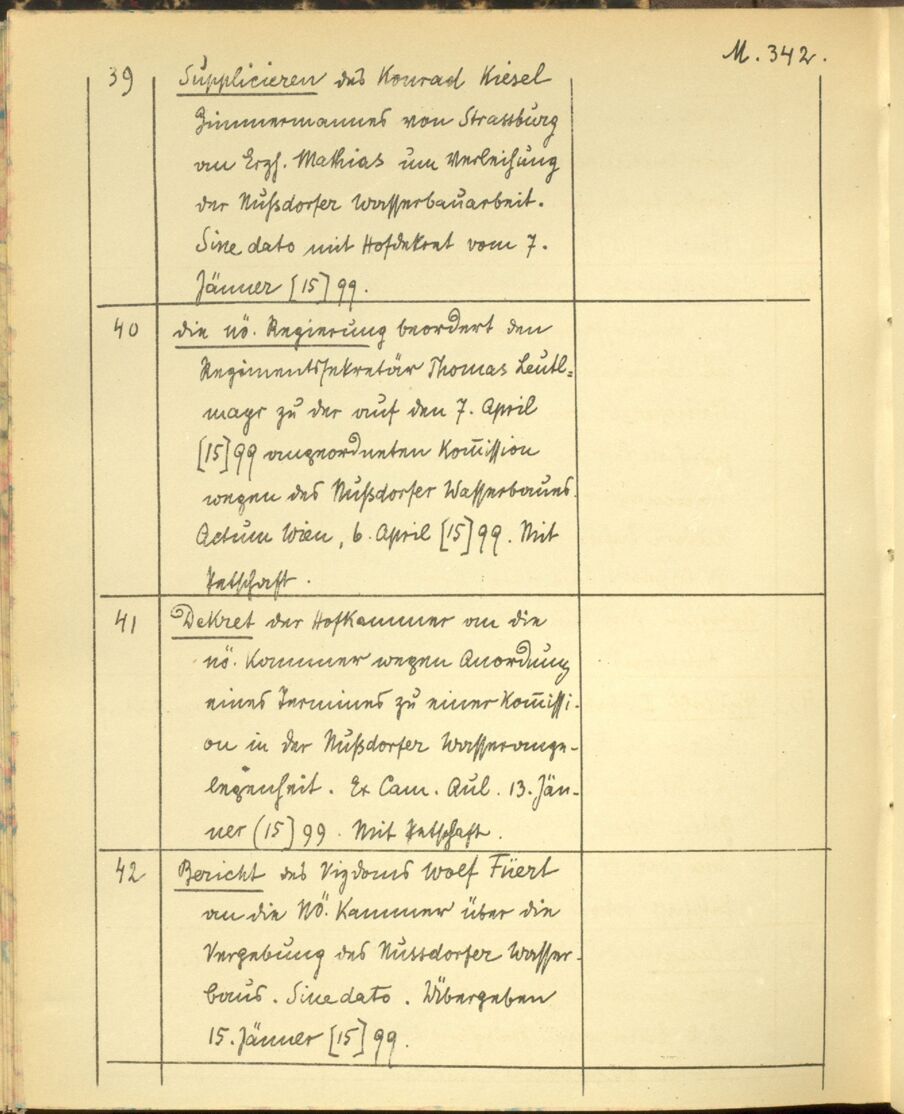 M. 342.
39 Supplicieren des Konrad Kiesel
Zimmermannes von Strassburg
an Erzh. Mathias um Verleihung
der Nußdorfer Wasserbauarbeit.
Sine dato mit Hofdekret vom 7.
Jänner [15]99.
40 die nö. Regierung beordert den
Regimentssekretär Thomas Leutl=
mayr zu der auf den 7. April
[15]99 angeordneten Kom̅ission
wegen des Nußdorfer Wasserbaues.
Actum Wien, 6. April [15]99. Mit
Petschaft.
41 Dekret der Hofkammer an die
nö. Kammer wegen Anordung
eines Termines zu einer Kom̅issi-
on in der Nußdorfer Wasserange-
legenheit. Ex Cam. Aul. 13. Jän-
ner (15]99. Mit Petschaft.
42 Bericht des Vizdoms Wolf Füert
an die NÖ. Kammer über die
Vergebung des Nussdorfer Wasser-
baus. Sine dato. Übergeben
15. Jänner [15]99.